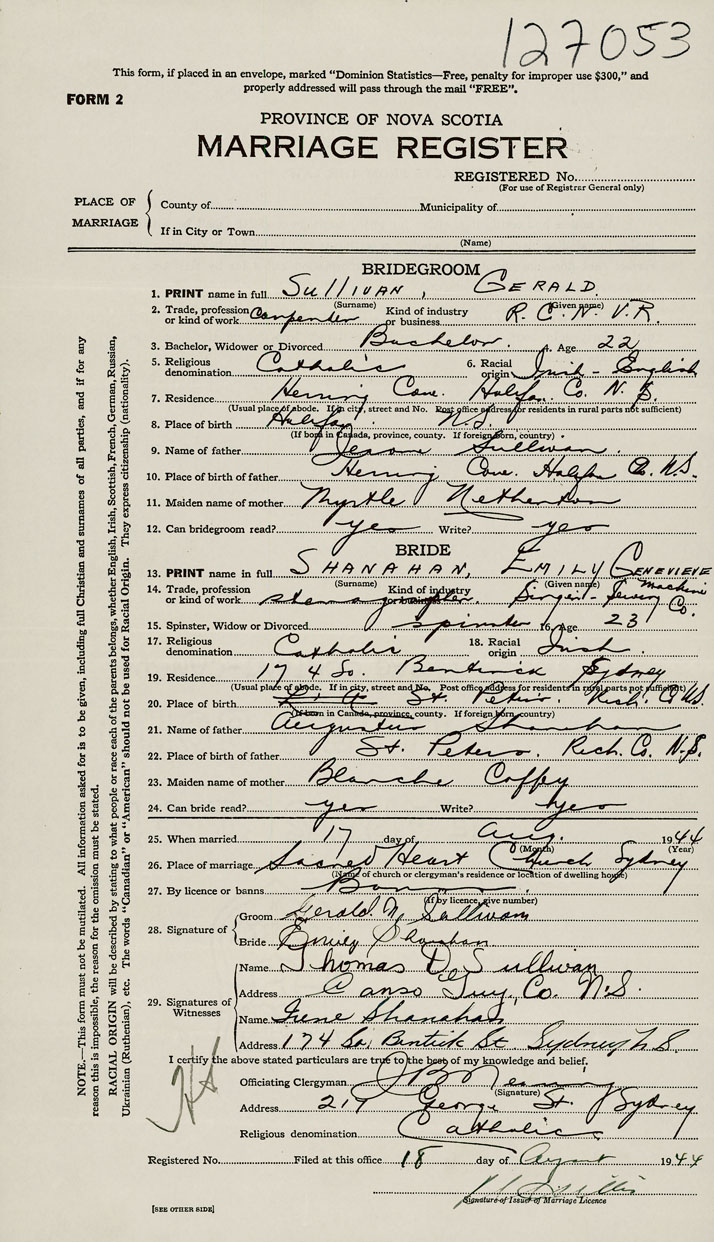 127053
This form, if placed in an envelope, marked "Dominion Statistics—Free, penalty for improper use $300," and
properly addressed will pass through the mail "FREE".
FORM 2
PROVINCE OF NOVA SCOTIA
MARRIAGE REGISTER
REGISTERED No.
(For use of Registrar General only)
PLACE OF MARRIAGE
County of Municipality of
If in City or Town
(Name)
BRIDEGROOM
1. PRINT name in full SULLIVAN, GERALD
(Surname) (Given name)
2. Trade, profession or kind of work Carpenter Kind of industry or business R.C.N.V.R.
3. Bachelor, Widower or Divorced Bachelor 4. Age 22
5. Religious denomination Catholic 6. Racial origin Irish - English
7. Residence Herring Cove. Halifax Co. N.S.
(Usual place of abode. If in city, street and No. Post office address for residents in rural parts not sufficient)
8. Place of birth Halifax N.S.
(If born in Canada, province, county. If foreign born, country)
9. Name of father Sullivan
10. Place of birth of father Herring Cove. Halifax Co. N.S.
11. Maiden name of mother Myrtle Netherton
12. Can bridegroom read? yes Write? yes
BRIDE
13. PRINT name in full SHANAHAN, EMILY GENEVIEVE
(Surname) (Given name)
14. Trade, profession or kind of work stenographer Kind of industry or business Singer - Sewing machine Co.
15. Spinster, Widow or Divorced Spinster 16. Age 23
17. Religious denomination Catholic 18. Racial origin Irish
19. Residence 174 So. Bentinck Sydney
(Usual place of abode. If in city, street and No. Post office address for residents in rural parts not sufficient)
20. Place of birth St. Peters. Rich. Co N.S.
(If born in Canada, province, county. If foreign born, country)
21. Name of father Augustus Shanahan
22. Place of birth of father St. Peters. Rich. Co. N.S.
23. Maiden name of mother Blanche Coffey
24. Can bride read? yes Write? yes
25. When married 17 day of Aug. 1944
(Month) (Year)
26. Place of marriage Sacred Heart Church Sydney
(Name of church or clergyman's residence or location of dwelling house)
27. By licence or banns Banns
(If by licence, give number)
28. Signature of
Groom Gerald N. Sullivan
Bride Emily Shanahan
29. Signatures of Witnesses
Name Thomas D. Sullivan
Address Canso Guy. Co. N.S.
Name Irene Shanahan
Address 174 So. Bentick St Sydney N.S.
I certify the above stated particulars are true to the best of my knowledge and belief.
Officiating Clergyman
(Signature)
Address George St. Sydney
Religious denomination Catholic
Registered No. Filed at this office 18 day of August 1944
Signature of Issuer of Marriage Licence
[SEE OTHER SIDE]
NOTE.—This form must not be mutilated. All information asked for is to be given, including full Christian and surnames of all parties, and if for any
reason this is impossible, the reason for the omission must be stated.
RACIAL ORIGIN will be described by stating to what people or race each of the parents belongs, whether English, Irish, Scottish, French, German, Russian,
Ukrainian (Ruthenian), etc. The words "Canadian" or "American" should not be used for Racial Origin. They express citizenship (nationality).